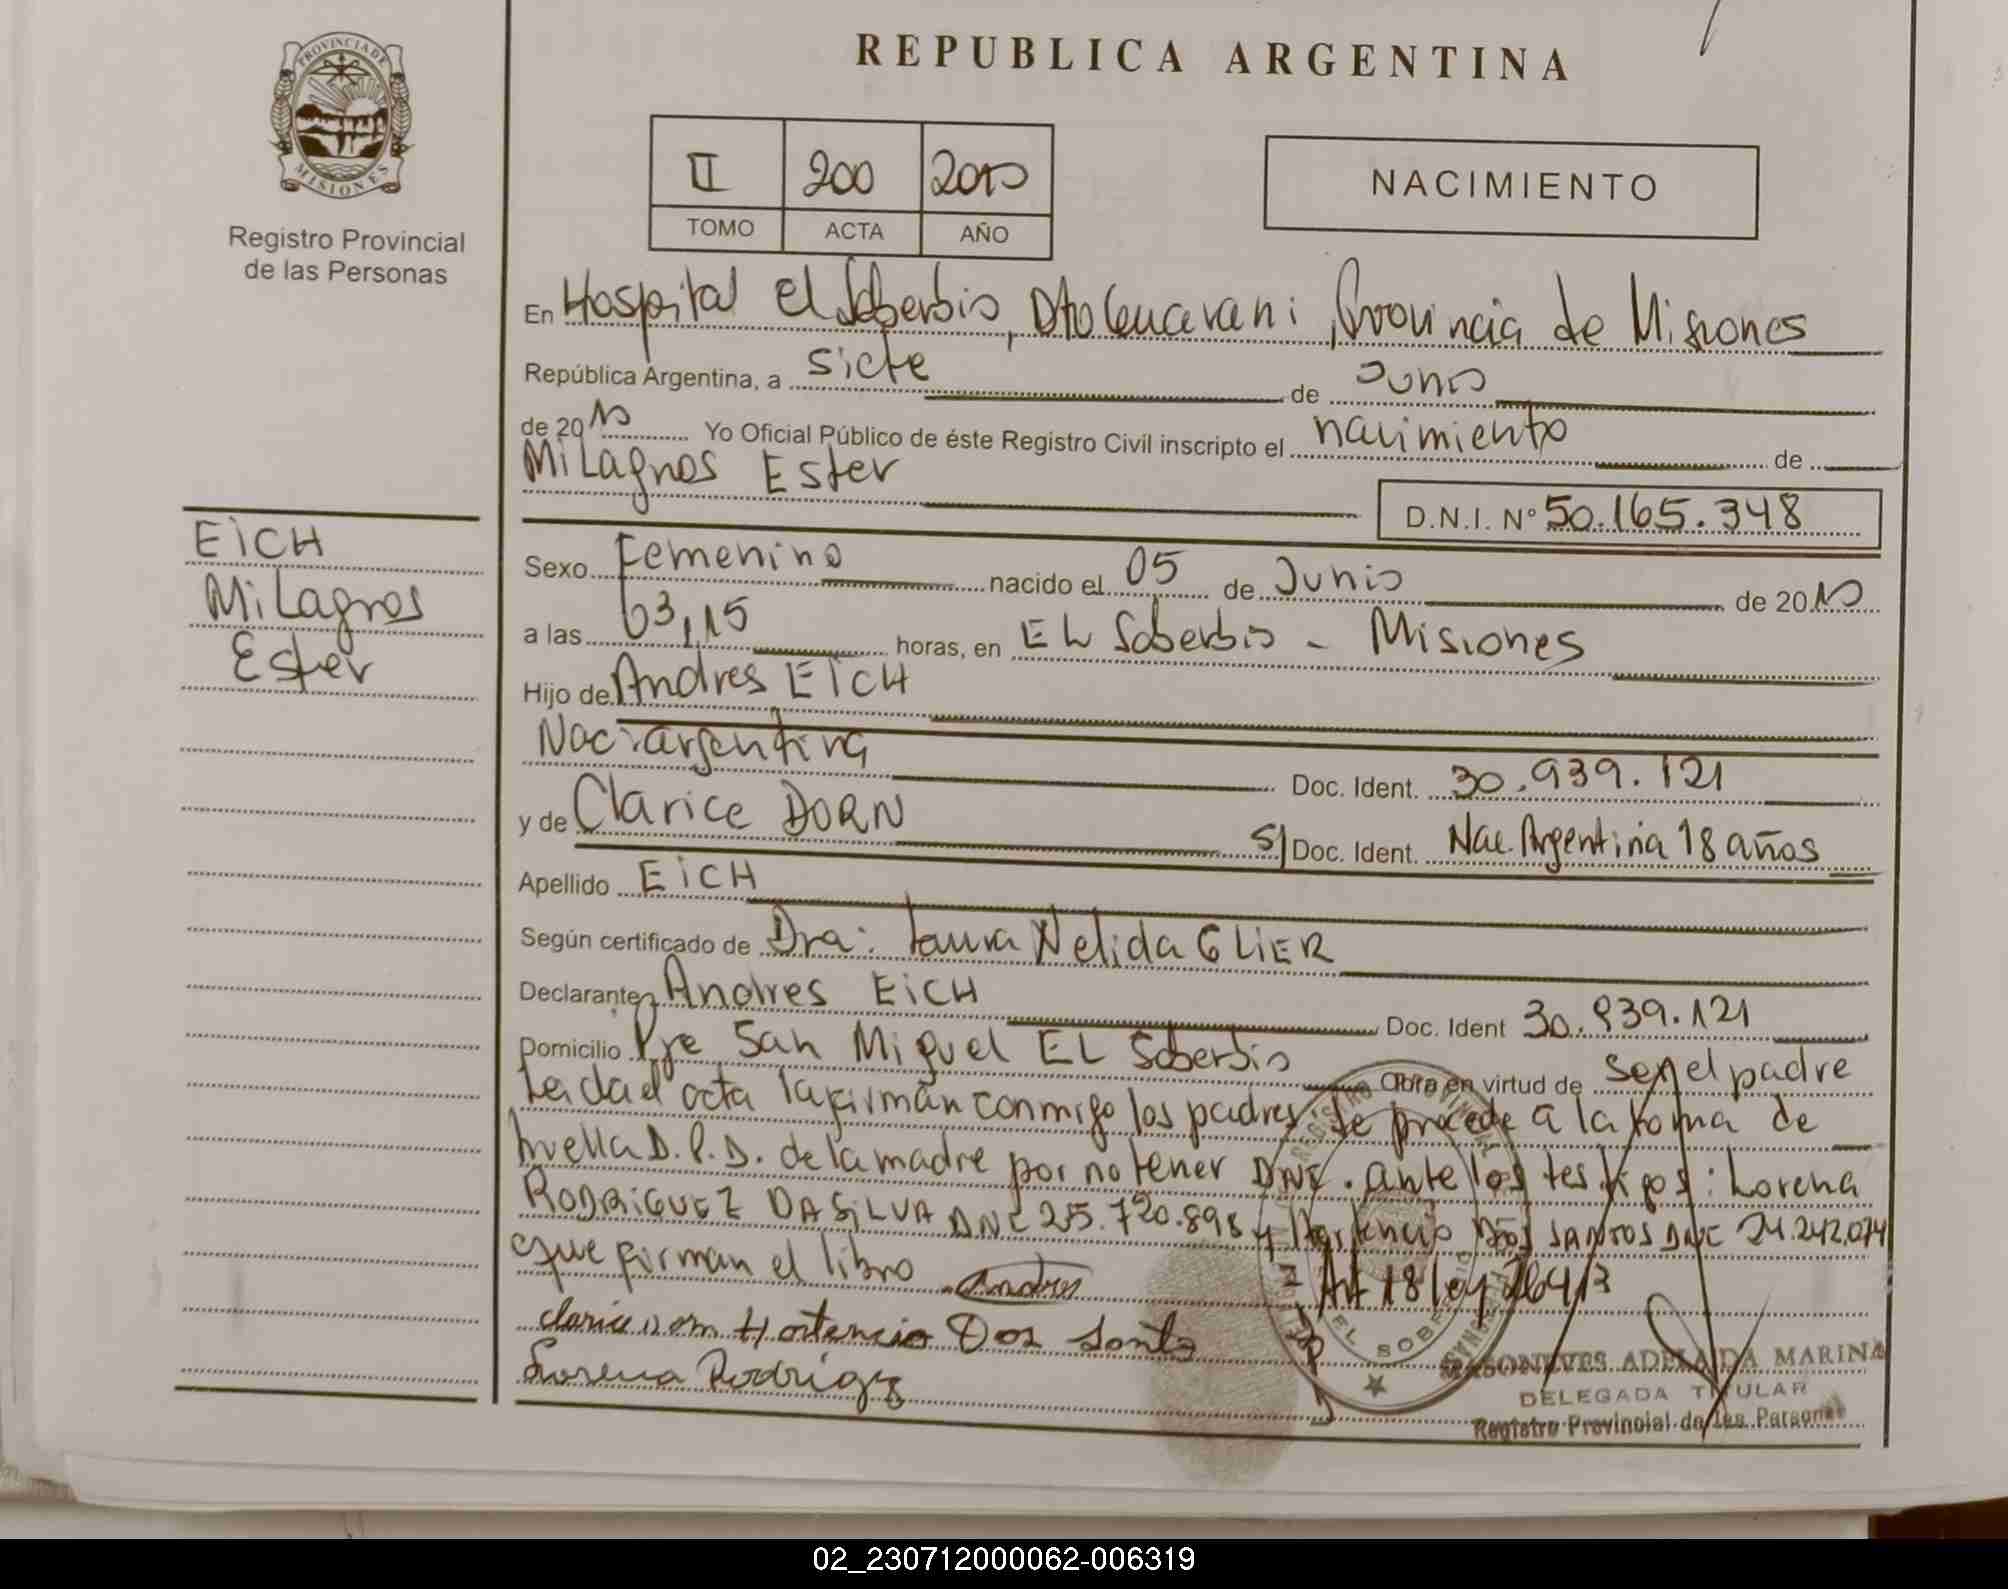 REPUBLICA ARGENTINA
PROVINCIA DE
MISIONES
Registro Provincial
de las Personas
II 200 2010
TOMO ACTA AÑO
NACIMIENTO
En Hospital El Soberbio, Dto Guarani, Provincia de Misiones
República Argentina, a siete de Junio
de 2010 Yo Oficial Público de éste Registro Civil inscripto el nacimiento de
Milagros Ester
D.N.I. N° 50.165.348
EICH
Milagros
Ester
Sexo Femenino nacido el 05 de Junio de 2010
a las 03,15 horas, en EL Soberbio - Misiones
Hijo de Andres EICH
Nac. argentina Doc. Ident. 30.939.121
y de Clarice DORN S/ Doc. Ident. Nac. Argentina 18 años
Apellido EICH
Según certificado de Dra: Laura Nelida GLIER
Declarante Andres EICH Doc. Ident 30.939.121
Domicilio Pje San Miguel EL Soberbio Obra en virtud de ser el padre
Leida el acta la firman conmigo los padres Se procede a la toma de
huella D.P.D. de la madre por no tener DNI. ante los testigos: Lorena
RODRIGUEZ DA SILVA DNI 25.720.898 y Hortencio DOS SANTOS DNI 24.242.074
que firman el libro Andres
Art 18 ley 26413
clarice Hortencio Dos Santo
Lorena Rodrigz
REGISTRO PROVINCIAL
EL SOBERBIO
ADELAIDA MARINA
DELEGADA TITULAR
Registro Provincial de las Personas
02_230712000062-006319